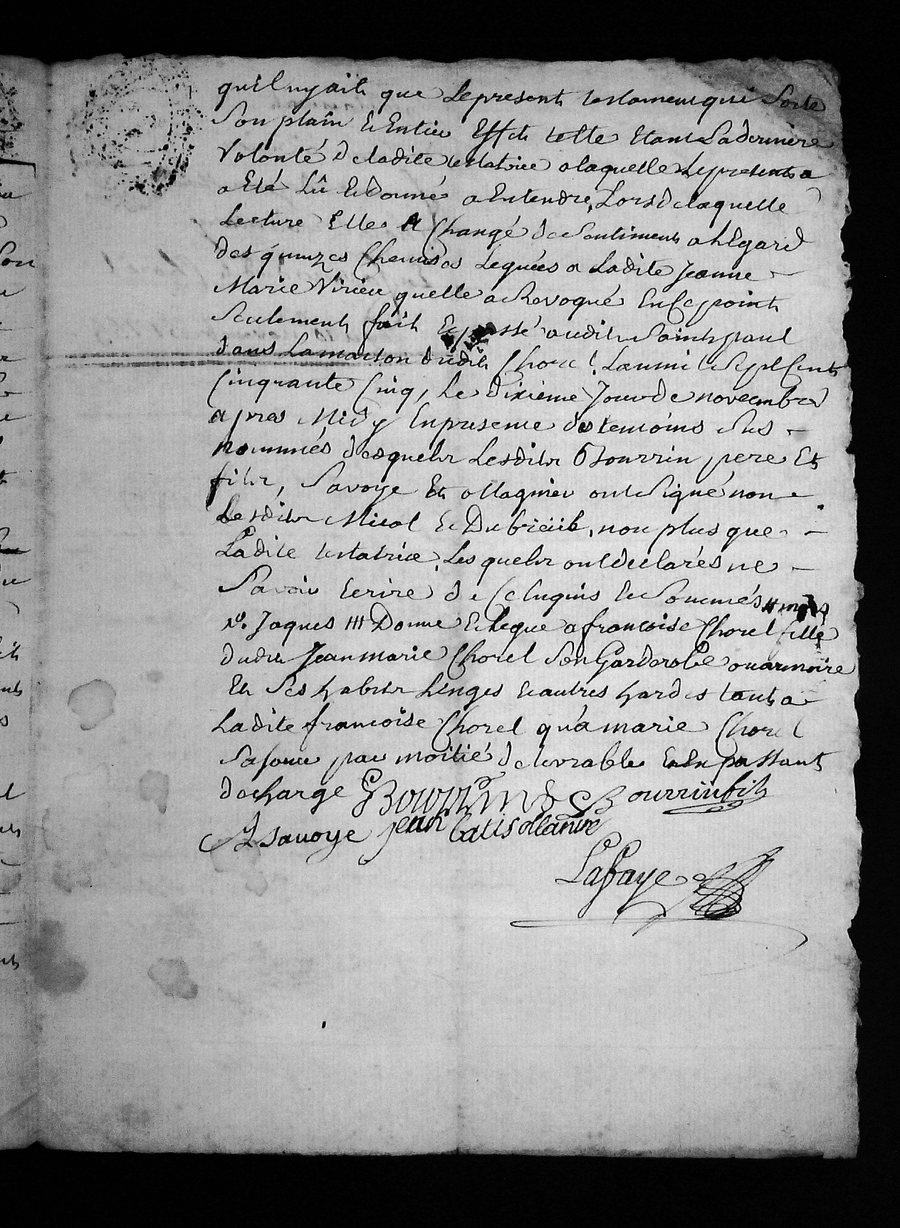 quil nyait que Lepresent testament qui Sorte
Son plain Et Entier Effet telle Etant La derniere
Volonté de ladite testatrice a laquelle Lepresent a
Eté Lû Et donné a Entendre, Lors de laquelle
Lecture Elle A Changé de Sentiment a LEgard
des quinzes Chemises Leguées a Ladite Jeanne
Marie Virieu quelle a Revoqué En Ce point
Seulement fait Et passé audit Saint paul
dans La maison dudit Chorel Lan mil Sept Cent
Cinquante Cinq, Le dixieme Jour de novembre
apres Midy En presence des temoins Sus
nommés desquels Lesdits Bourrin pere Et
fils, Savoye Et ollagnier ont Signé non
Lesdits Micol Et Dubrüib, non plus que
Ladite testatrice, Lesquels ont declarés ne
Savoir Ecrire de Ce Enquis Et Sommés
Jaques /// Donne Et legue a francoise Chorel fille
dudit Jean marie Chorel Son Garderobe ou armoire
Et Ses habits Linges Et autres hardes tant a
Ladite francoise Chorel qu'a marie Chorel
Sa Soeur par moitié delivrable En En passant
decharge Bourrin Bourrin fils
A Savoye jean batis ollanié
Lafaye